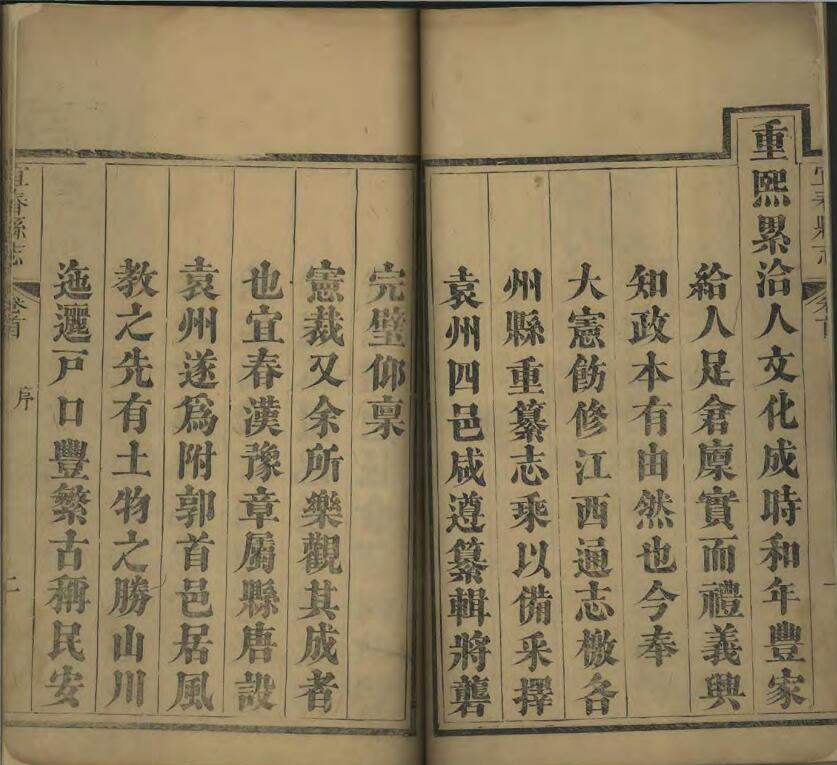 重熙累洽人文化成時和年豐家
給人足倉廪實而禮義興
知政本有由然也今奉
大憲飭修江西通志檄各
州縣重纂志乘以備采擇
袁州四邑咸遵纂輯將蕆
完璧仰禀
憲裁又余所樂觀其成者
也宜春漢豫章屬縣唐設
袁州遂爲附郭首邑居風
教之先有土物之勝山川
迤邐戸口豐繁古稱民安
宜春縣志
卷首
序
二